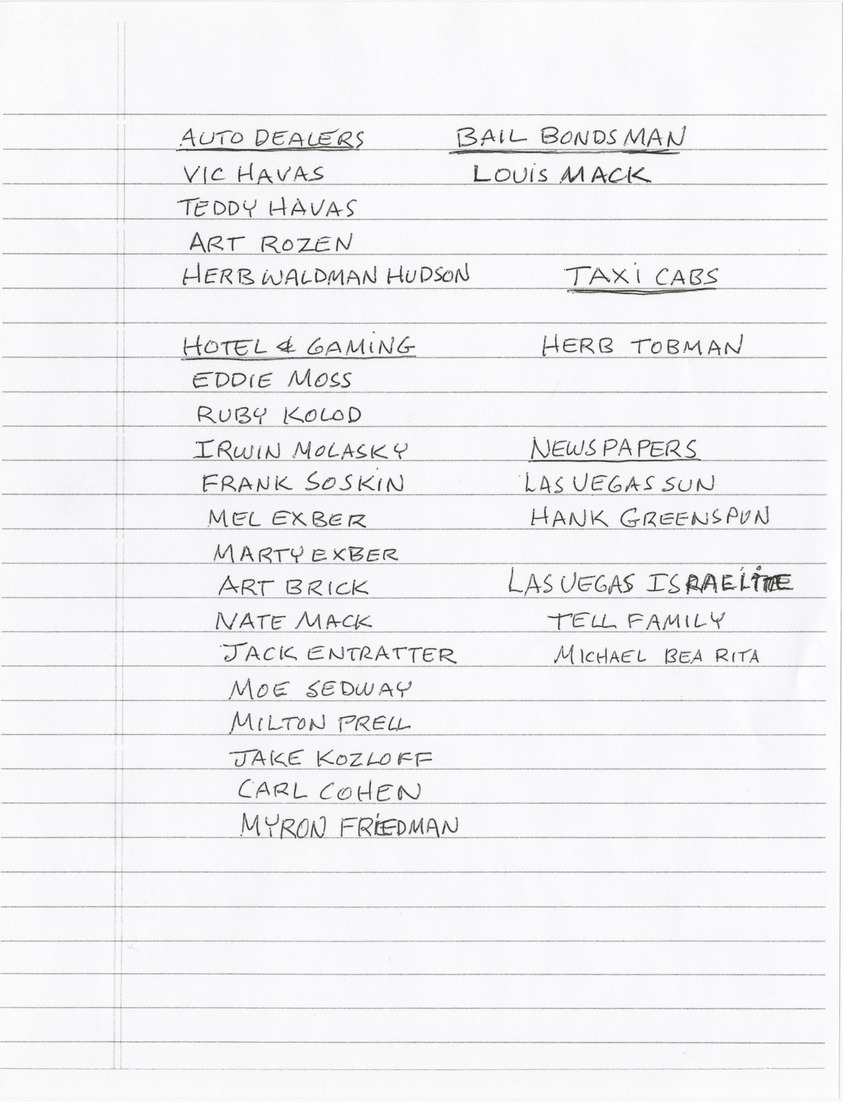 AUTO DEALERS
VIC HAVAS
TEDDY HAVAS
ART ROZEN
HERB WALDMAN HUDSON
HOTEL & GAMING
EDDIE MOSS
RUBY KOLOD
IRWIN MOLASKY
FRANK SOSKIN
MEL EXBER
MARTY EXBER
ART BRICK
NATE MACK
JACK ENTRATTER
MOE SEDWAY
MILTON PRELL
JAKE KOZLOFF
CARL COHEN
MYRON FRIEDMAN
BAIL BONDSMAN
LOUIS MACK
TAXI CABS
HERB TOBMAN
NEWSPAPERS
LAS VEGAS SUN
HANK GREENSPUN
LAS VEGAS ISRAELITE
TELL FAMILY
MICHAEL BEA RITA